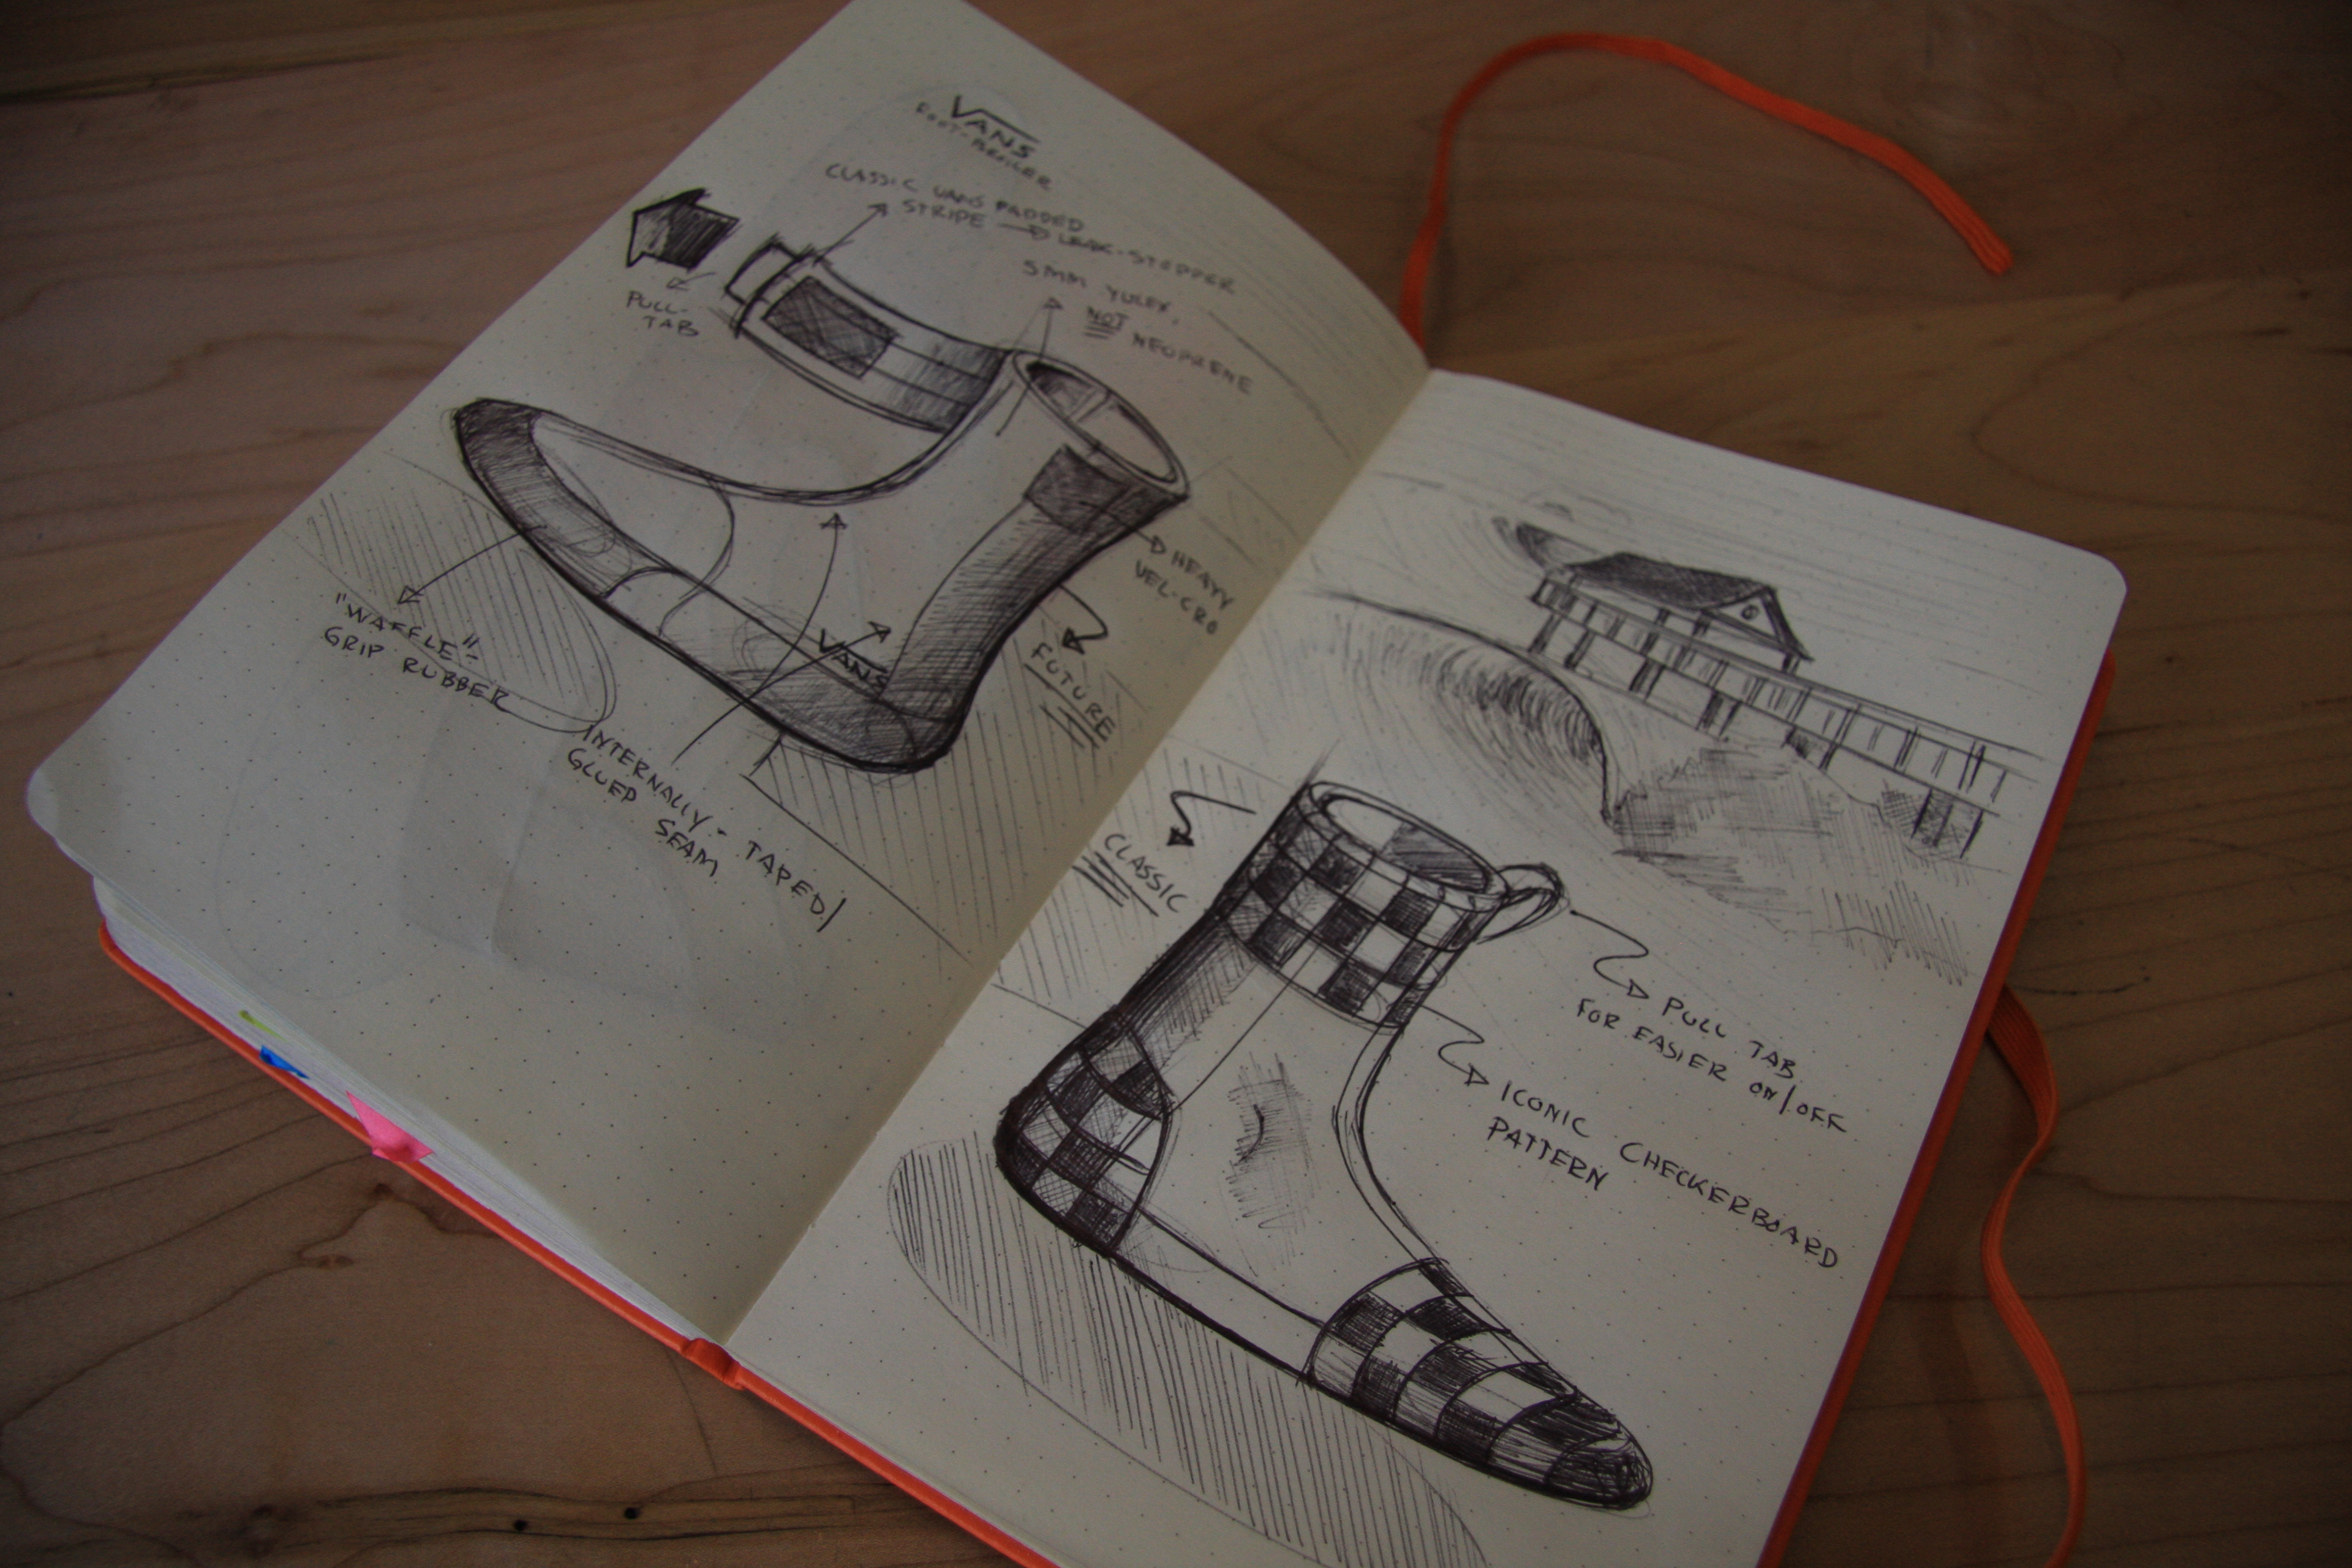 VANS
CLASSIC VANS PADDED
STRIPE → LEAK-STOPPER
5MM YULEX.
NOT NEOPRENE
PULL-
TAB
HEAVY
VEL-CRO
FUTURE
VANS
"WAFFLE"
GRIP RUBBER
INTERNALLY - TAPED/
GLUED
SEAM
CLASSIC
PULL TAB
FOR EASIER ON/OFF
ICONIC CHECKERBOARD
PATTERN